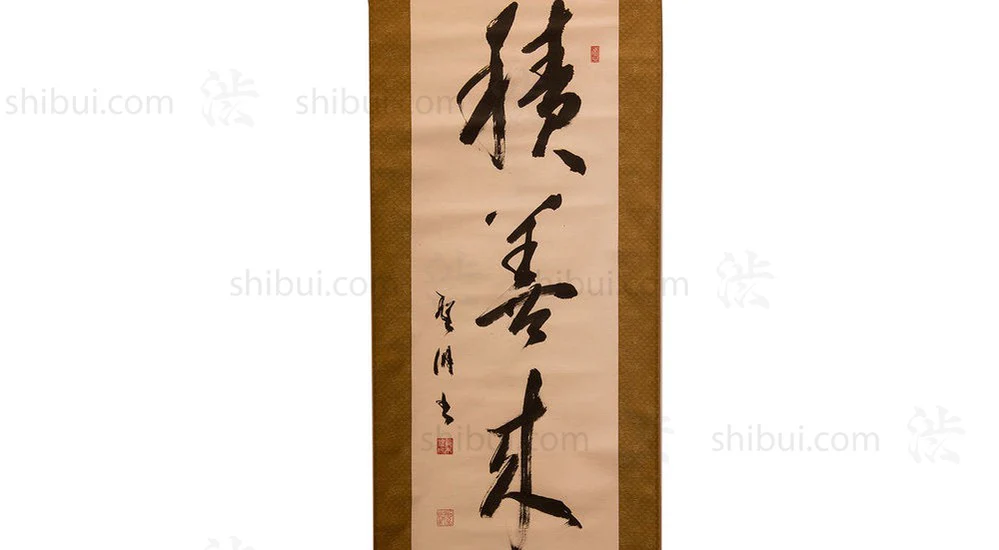 shibui.com 渋 shibui.com
shibui.com shibui.com 渋
shibui.com shibui.com 渋
積善来
聖
書